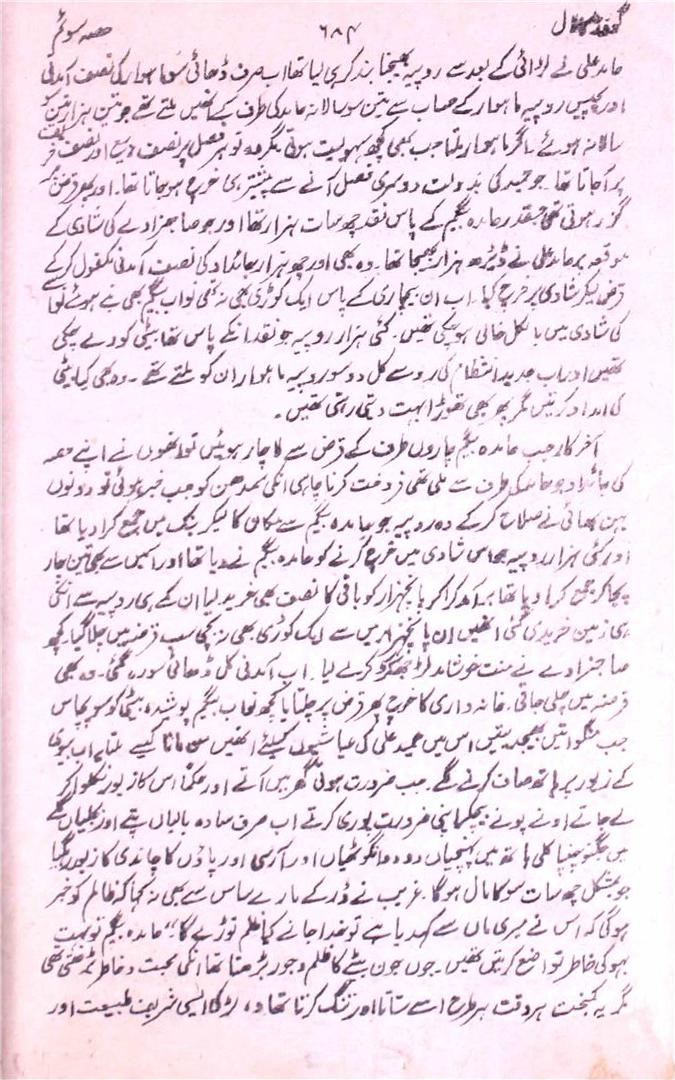 گودڑ کا لال ۶۸۴ حصہ سوئم
حامد علی نے لڑائی کے بعد سے روپیہ بھیجنا بند کر ہی لیا تھا اب صرف ڈھائی سو ماہوار کی نصف آمدنی
اور پچیس روپیہ ماہوار کے حساب سے تین سو سالانہ حامد کی طرف سے انھیں ملتے تھے جو تین ہزار تین سو
سالانہ ہوئے۔ اگر ماہوار ملتا جب بھی کچھ سہولیت ہوتی مگر وہ تو ہر فصل پر نصف ربیع اور نصف خریف
پر آجاتا تھا۔ جو حمید کی بدولت دوسری فصل آنے سے پیشتر ہی خرچ ہو جاتا تھا۔ اور پھر قرض پر
گزر ہوتی تھی جسقدر حامدہ بیگم کے پاس نقد چھ سات ہزار تھا اور جو صاحبزادے کی شادی کے
موقعہ پر حامد علی نے ڈیڑھ ہزار بھیجا تھا۔ وہ بھی اور چھ ہزار جائداد کی نصف آمدنی مکفول کر کے
قرض لیکر شادی پر خرچ کیا۔ اب ان بیچاری کے پاس ایک کوڑی بھی نہ تھی نواب بیگم بھی بے ہوئے
کی شادی میں بالکل خالی ہو چکی تھیں۔ کئی ہزار روپیہ جو نقد انکے پاس تھا بیٹی کو دے چکی
تھیں اور اب جدید انتظام کی رو سے کل دو سو روپیہ ماہوار ان کو ملتے تھے۔ وہ بھی کیا بیٹی
کی امداد کرتیں مگر پھر بھی تھوڑا بہت دیتی رہتی تھیں۔
آخر کار جب حامدہ بیگم چاروں طرف کے قرض سے لاچار ہوئیں تو انھوں نے اپنے حصہ
کی جائداد جو حامد کی طرف سے ملی تھی فروخت کرنا چاہی انکی سمدھن کو جب خبر ہوئی تو دونوں
بہن بھائی نے صلاح کر کے وہ روپیہ جو حامدہ بیگم سے مکان کا لیکر بنک میں جمع کرا دیا تھا
اور کئی ہزار روپیہ جو اسی شادی میں خرچ کرنے کو حامدہ بیگم نے دیا تھا اور اسمیں سے بھی تین چار
بچا کر جمع کرا دیا تھا برآمد کرا کر پانچہزار کو باقی کا نصف بھی خرید لیا ان کے ہی روپیہ سے انکی
ہی زمین خریدی گئی انھیں ان پانچہزار میں سے ایک کوڑی بھی نہ بچی سب قرضہ میں چلا گیا کچھ
صاحبزادے نے منت خوشامد لڑ جھگڑ کر لے لیا۔ اب آمدنی کل ڈھائی سو رہ گئی۔ وہ بھی
قرضہ میں چلی جاتی۔ خانہ داری کا خرچ پھر قرض پر چلتا یا کچھ نواب بیگم پوشیدہ بیٹی کو سو پچاس
جب منگواتیں بھیجدیتیں اس میں حمید علی کی عیاشیوں کیلئے انھیں من مانا کیسے ملتا۔ اب بیوی
کے زیور پر ہاتھ صاف کرنے لگے۔ جب ضرورت ہوتی گھر میں آتے اور حکماً اس کا زیور نکلوا کر
لے جاتے اونے پونے بیچکر اپنی ضرورت پوری کرتے اب صرف سادہ بالیاں پتے اور بجلیاں گلے
میں جگنو چنپا کلی ہاتھ میں پہنچیاں دو دو انگوٹھیاں اور آرسی اور پاؤں کا چاندی کا زیور رہ گیا
جو بمشکل چھ سات سو کا مال ہوگا۔ غریب نے ڈر کے مارے ساس سے بھی نہ کہا کہ ظالم کو خبر
ہوگی کہ اس نے میری ماں سے کہدیا ہے تو خدا جانے کیا ظلم توڑے گا" حامدہ بیگم تو بہت
بہو کی خاطر تواضع کرتیں تھیں۔ جوں جوں بیٹے کا ظلم و جور بڑھتا تھا انکی محبت و خاطر بڑھتی تھی
مگر یہ کمبخت ہر وقت ہر طرح اسے ستاتا اور تنگ کرتا تھا وہ لڑکا ایسی شریف طبیعت اور